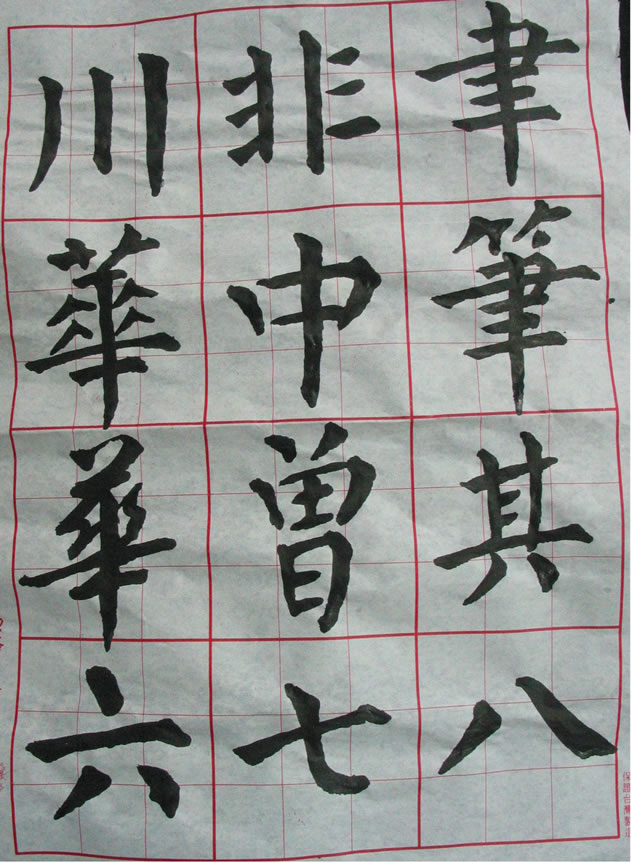 聿筆其八
非中曾七
川華華六
保證台灣製造